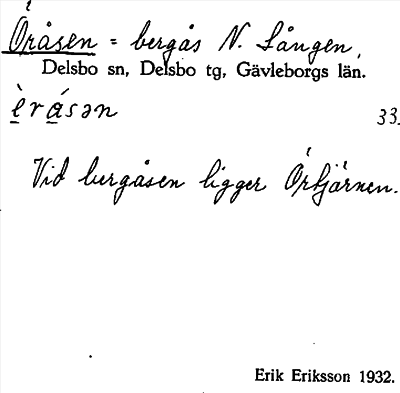 Öråsen = bergås N. Sången,
Delsbo sn, Delsbo tg, Gävleborgs län.
èrásən 33.
Vid bergåsen ligger Örtjärnen.
Erik Eriksson 1932.